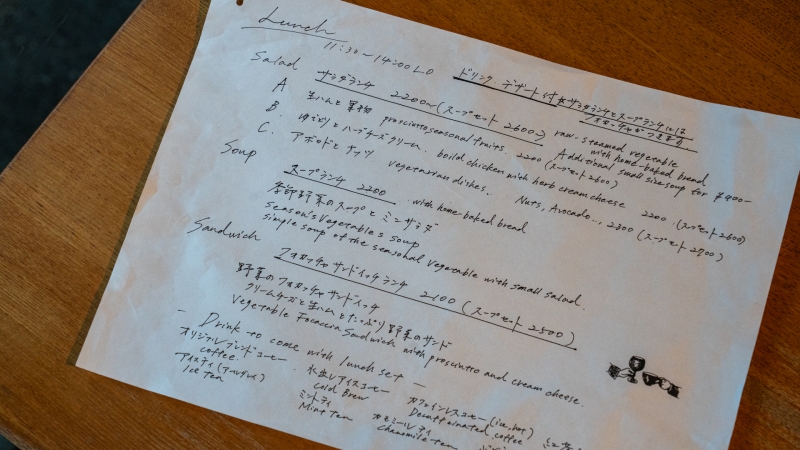 Lunch
11:30-14:00 LO
ドリンク・デザート付 サラダランチとスープランチには
フォカッチャがつきます
Salad
サラダランチ 2200~(スープセット 2600)
raw-steamed vegetable
with home-baked bread
Additional small size soup for ¥400-
A 生ハムと果物 prosciutto, seasonal fruits. 2200 (スープセット 2600)
B ゆでどりとハーブチーズクリーム. boild chicken with herb cream cheese 2200 (スープセット 2600)
C. アボカドとナッツ vegetarian dishes. Nuts, Avocado..., 2300 (スープセット 2700)
Soup
スープランチ 2200 with home-baked bread
季節野菜のスープとミニサラダ
season's vegetable's soup
simple soup of the seasonal vegetable with small salad.
Sandwich
フォカッチャサンドイッチランチ 2100 (スープセット 2500)
野菜のフォカッチャサンドイッチ
クリームチーズと生ハムとたっぷり野菜のサンド
Vegetable Focaccia Sandwich with prosciutto and cream cheese.
- Drink to come with lunch set -
オリジナルブレンドコーヒー 水出しアイスコーヒー カフェインレスコーヒー (ice, hot)
coffee. Cold Brew Decaffeinated coffee
アイスティ(アールグレイ) ミントティ カモミールティ
Ice Tea Mint tea Chamomile tea